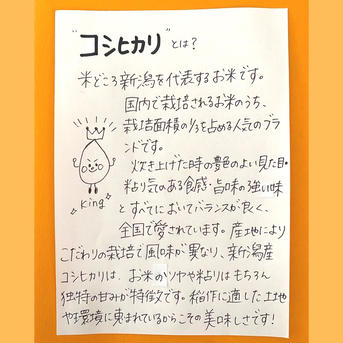 "コシヒカリ"とは?
米どころ新潟を代表するお米です。
国内で栽培されるお米のうち、
栽培面積の1/3を占める人気のブラ
ンドです。
炊き上げた時の艶のよい見た目・
粘り気のある食感・旨味の強い味
とすべてにおいてバランスが良く、
全国で愛されています。産地により
こだわりの栽培で風味が異なり、新潟産
コシヒカリは、お米のツヤや粘りはもちろん
独特の甘みが特徴です。稲作に適した土地
や環境に恵まれているからこその美味しさです!
King